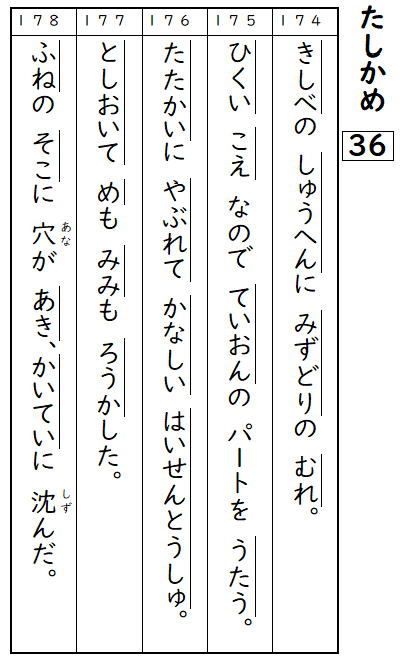 たしかめ
36
174
きしべの しゅうへんに みずどりの むれ。
175
ひくい こえ なので ていおんの パートを うたう。
176
たたかいに やぶれて かなしい はいせんとうしゅ。
177
としおいて めも みみも ろうかした。
178
ふねの そこに 穴が あき、かいていに 沈んだ。
あな
しず